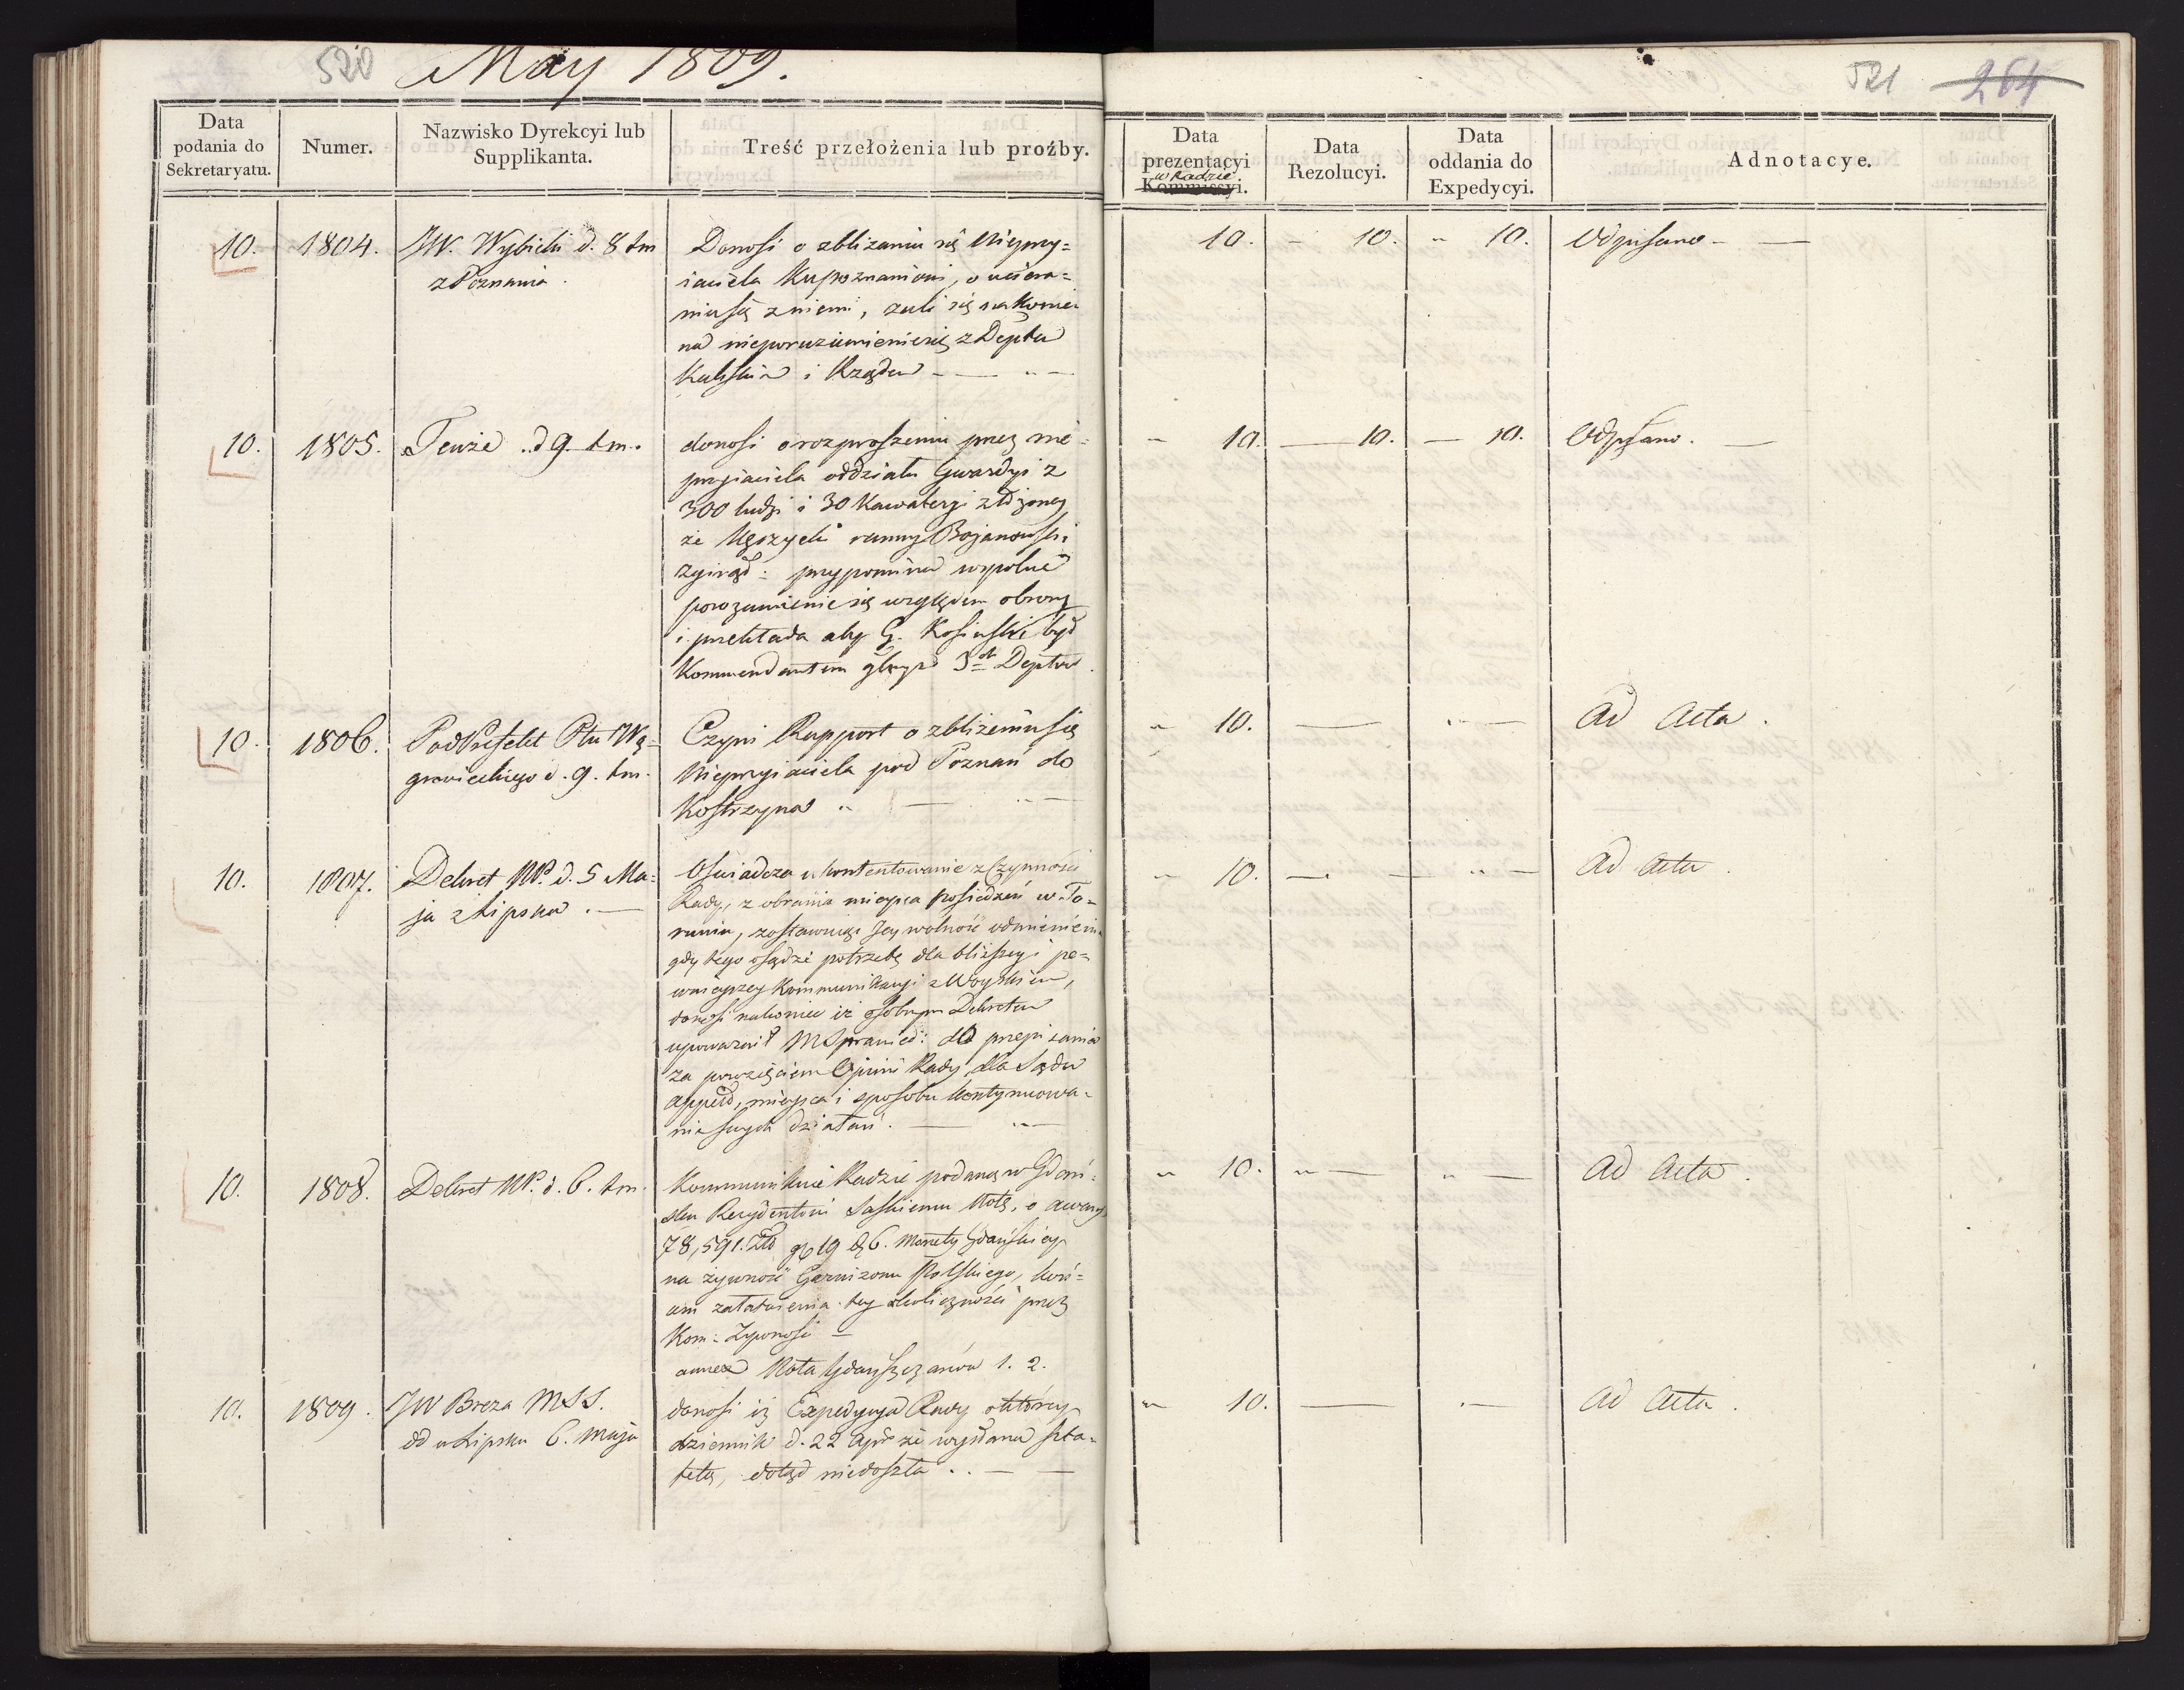 520 May 1809.
521 264
Data podania do Sekretaryatu.
Numer.
Nazwisko Dyrekcyi lub Supplikanta.
Treść przełożenia lub proźby.
Data prezentacyi w Radzie Kommissyi.
Data Rezolucyi.
Data oddania do Expedycyi.
Adnotacye.
10. 1804. JW. Wybicki d. 8 t m
z Poznania.
Donosi o zblizaniu się Nieprzy=
iaciela Ku poznaniowi, o
z niemi, żali się na Koniec
na nieporozumienie się z Deptu
Kalskim i Rządem
10. - 10. " 10. Odpisano -
10. 1805. Tenże d 9. t m.
donosi o rozproszeniu przez nie=
przyiaciela oddziału Gwardyi z
300 ludzi i 30 Kawaleryi złożoney
ze ranny Bojanowski
przypomina wspolne
porozumienie się względem obrony
i przekłada aby G. Kosinski był
Kommendantem 3 Deptów.
" 10. — 10. — 10. Odpisano.
10. 1806. PodPrefekt Ptu Wą=
growieckiego d. 9. t m.
Czyni Rapport o zbliżeniu się
Nieprzyiaciela pod Poznań do
Kostrzyna
" 10. Ad Acta.
10. 1807. Dekret NP. d. 5 Ma=
ja z Lipska.
Oświadcza ukontentowanie z Czynności
Rady, z obrania mieysca posiedzeń w To=
runiu, zostawuiąc Jey wolność odmienienia
gdy tego osądzi potrzebę dla bliższey i pe=
wnieyszey Kommunikacyi z Woyskiem,
donosi nakoniec iż osobnym Dekretem
upoważnił MSprawied: do przepisania
za powzięciem Opinii Rady, dla Sądu
appell, mieysca i sposobu kontynuowa=
nia swych działań.
" 10. Ad Acta.
10. 1808. Dekret NP. d. 6. t m.
Kommunikuie Radzie podaną w Gdań=
sku Rezydentowi Saskiemu Notę, o
78,591. Zł gr 19 6. Monety Gdańskiey
na żywność Garnizonu Polskiego,
załatwienia tey okoliczności przez
Kom: Żywnosci
annex Nota Gdańszczanów 1. 2.
" 10. Ad Acta.
10. 1809. JW Breza MSS.
dd z Lipska 6. Maja
donosi iż Expedycya Rady
dziennik d. 22 Apr: wysłana szta=
fetą, dotąd niedoszła.
" 10. Ad Acta.